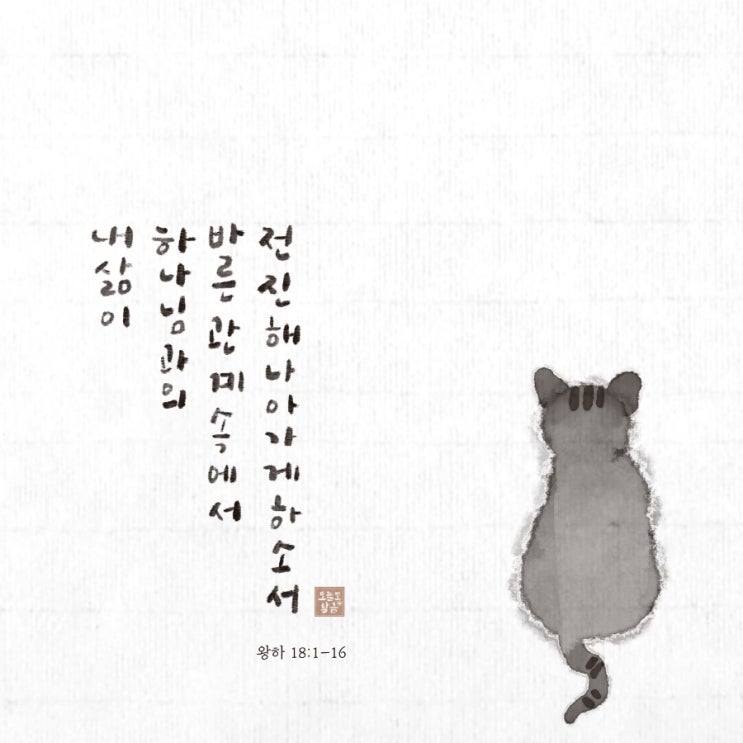 내 삶이
하나님과의
바른 관계 속에서
전진해 나아가게 하소서
오늘도
맑음
왕하 18:1-16